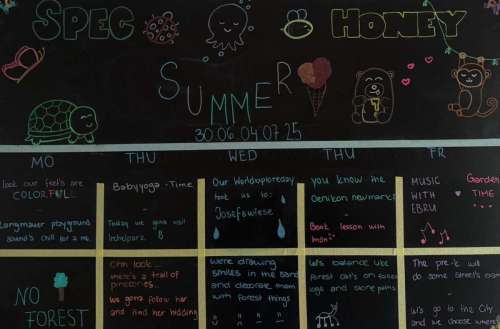 SPEC HONEY
SUMMER
30.06 04.07.25
MO THU WED THU FR
look our feel's are
COLORFULL
playground
sound's chill for a me
Babyyoga-Time
-
Today we gona visit
Our Worldexploreday
took us to:
Josefswiese
you know the
Oerlikon newmarkt?
-
Book lesson with
MUSIC
WITH
EBRU
Garden
TIME
NO
FOREST
Ohh look...
there's a trail of
pinecones...
We gona follow her
and find her hidding
We're drawing
smiles in the sand
and decorate them
with forest things
let's balance like
forest cat's on
logs and stone paths
The pre-k will
do some street's
-
let's go to the City
and we choose where